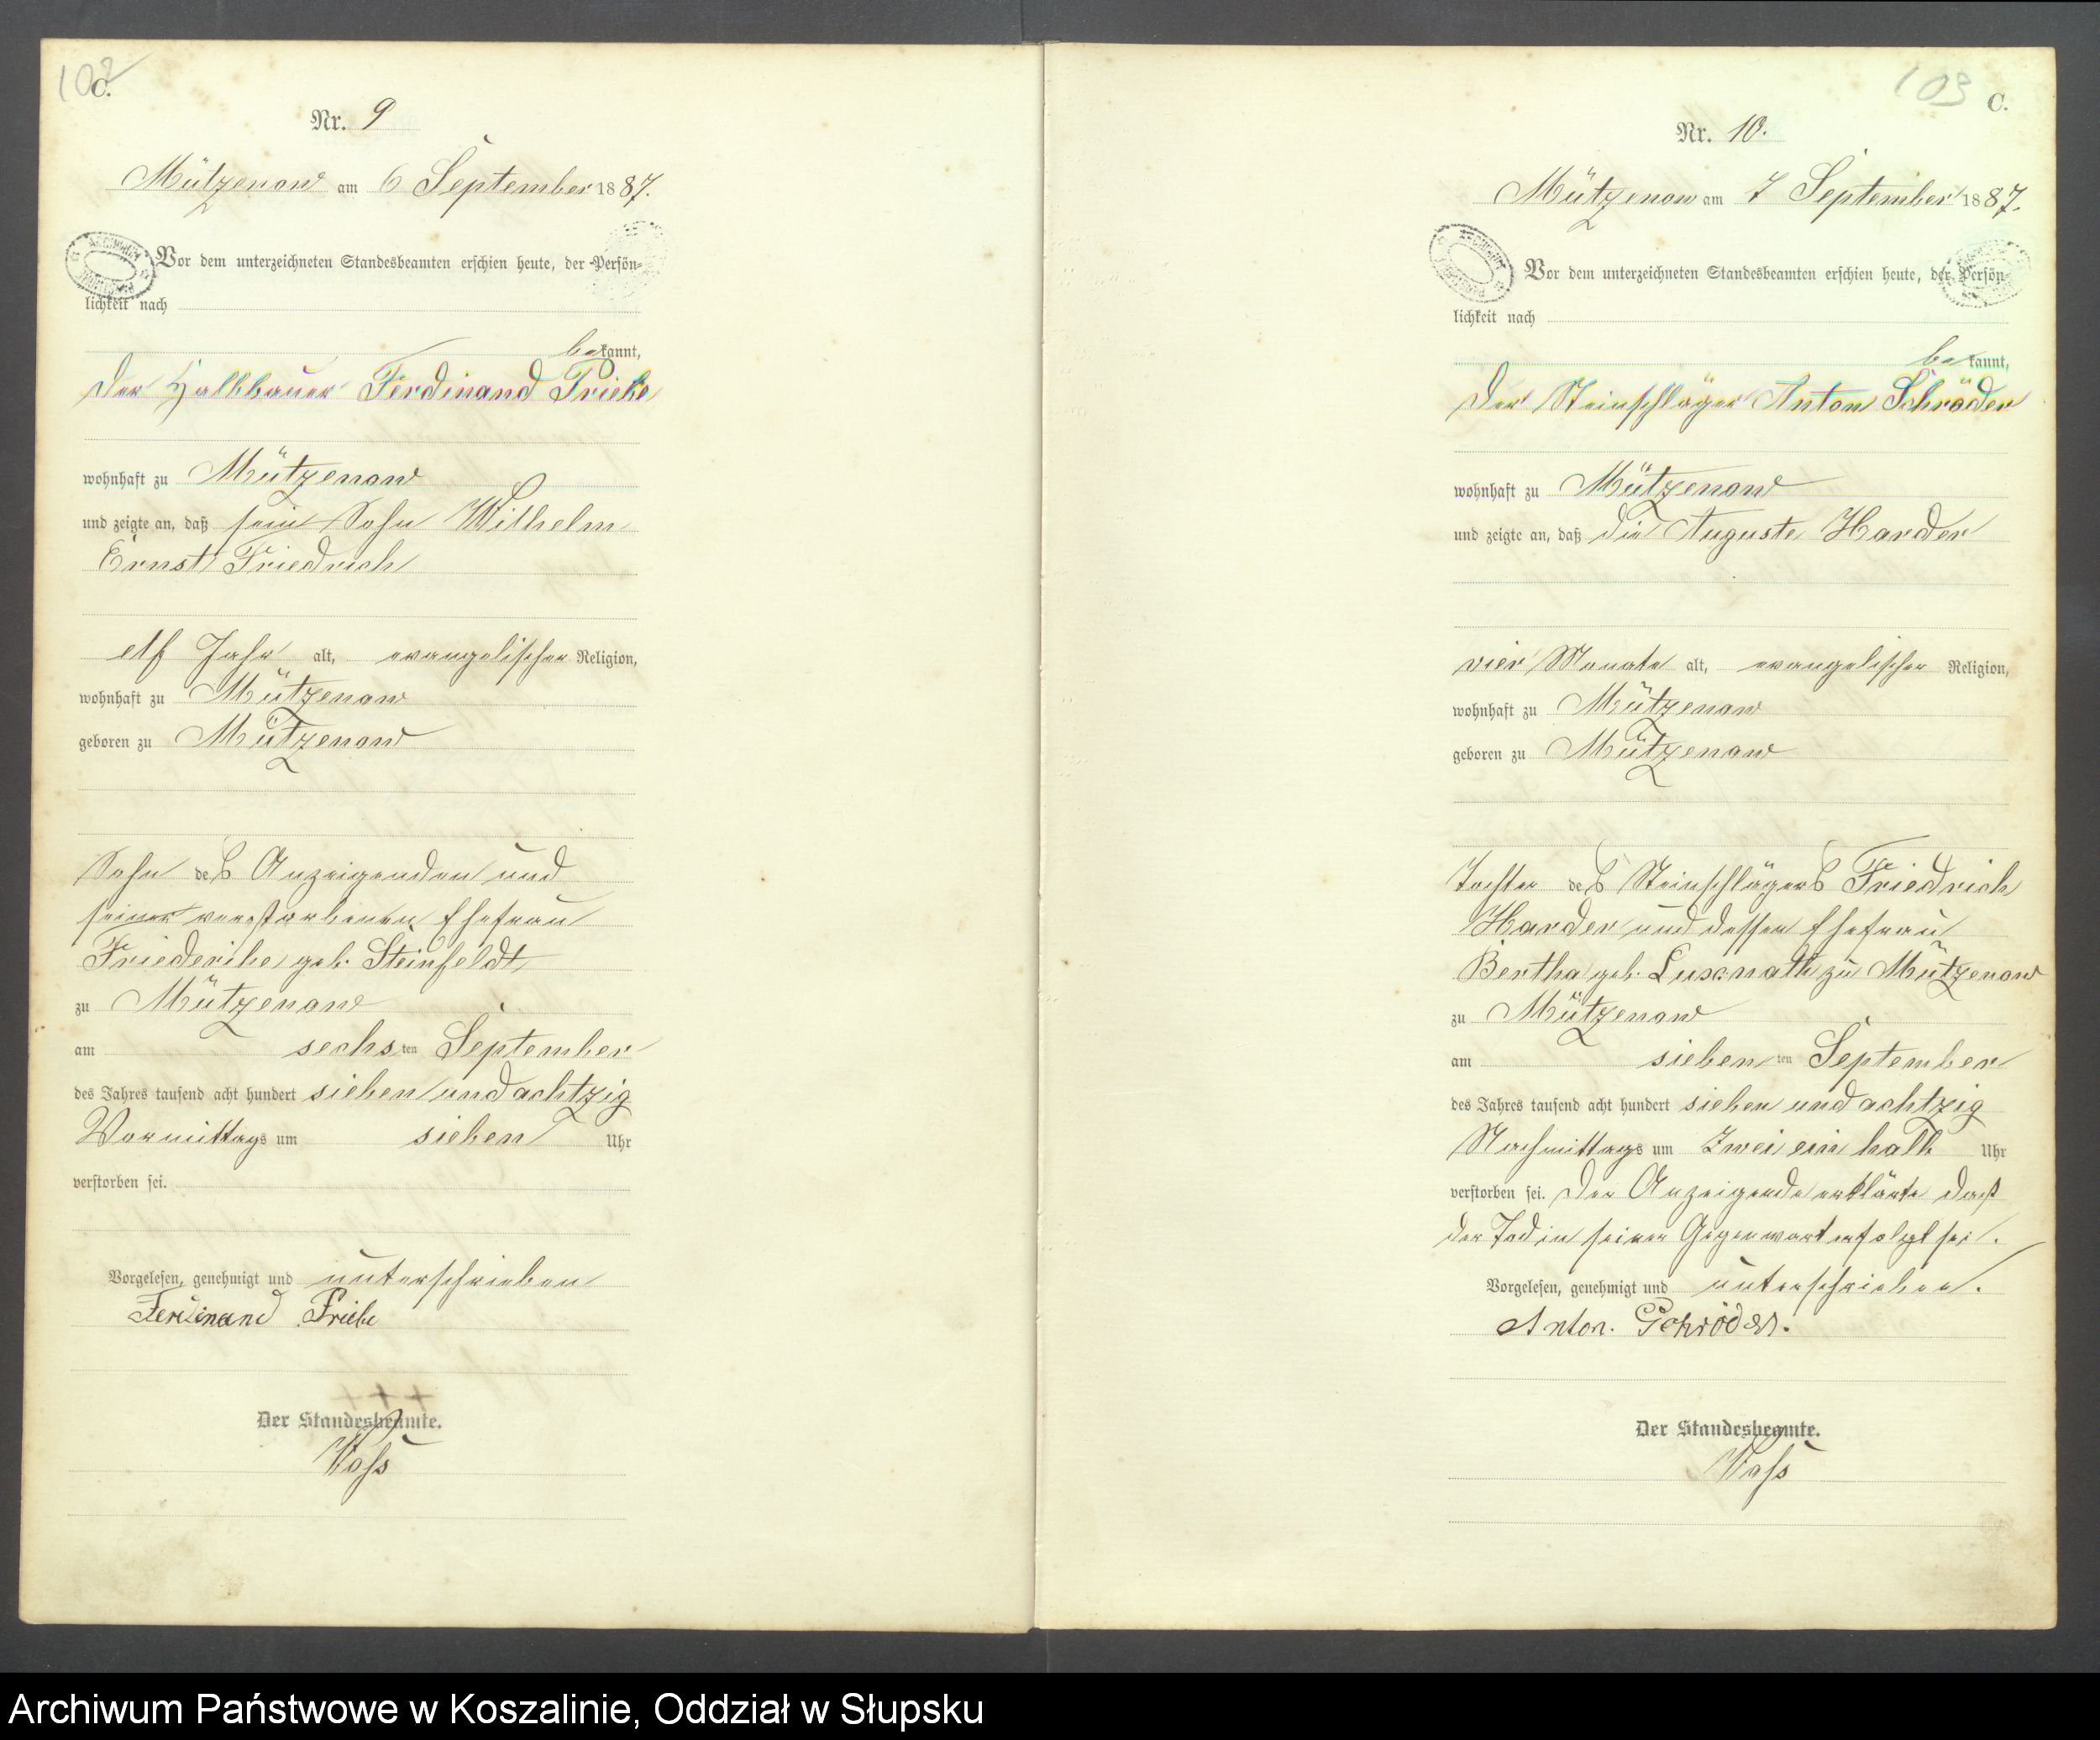 102
C.
Nr. 9
Mützenow am 6 September 1887.
Vor dem unterzeichneten Standesbeamten erschien heute, der Persön-
lichkeit nach
bekannt,
der Halbbauer Ferdinand Priebe
wohnhaft zu Mützenow
und zeigte an, daß sein Sohn Wilhelm
Ernst Friedrich
elf Jahr alt, evangelischer Religion,
wohnhaft zu Mützenow
geboren zu Mützenow
Sohn des Anzeigenden und
seiner verstorbenen Ehefrau
Friederike geb. Steinfeldt
zu Mützenow
am sechsten September
des Jahres tausend acht hundert sieben und achtzig
Vormittags um sieben Uhr
verstorben sei.
Vorgelesen, genehmigt und unterschrieben
Ferdinand Priebe
Der Standesbeamte.
Voss
103
C.
Nr. 10.
Mützenow am 7 September 1887.
Vor dem unterzeichneten Standesbeamten erschien heute, der Persön-
lichkeit nach
bekannt,
der Steinschläger Anton Schröder
wohnhaft zu Mützenow
und zeigte an, daß die Auguste Harder
vier Monate alt, evangelischer Religion,
wohnhaft zu Mützenow
geboren zu Mützenow
Tochter des Steinschlägers Friedrich
Harder und dessen Ehefrau
Bertha geb. zu Mützenow
zu Mützenow
am siebenten September
des Jahres tausend acht hundert sieben und achtzig
Nachmittags um Zwei ein halb Uhr
verstorben sei. Der Anzeigende erklärte daß
der Tod in seiner Gegenwart erfolgt sei.
Vorgelesen, genehmigt und unterschrieben.
Anton. Schröder.
Der Standesbeamte.
Voss
Archiwum Państwowe w Koszalinie, Oddział w Słupsku